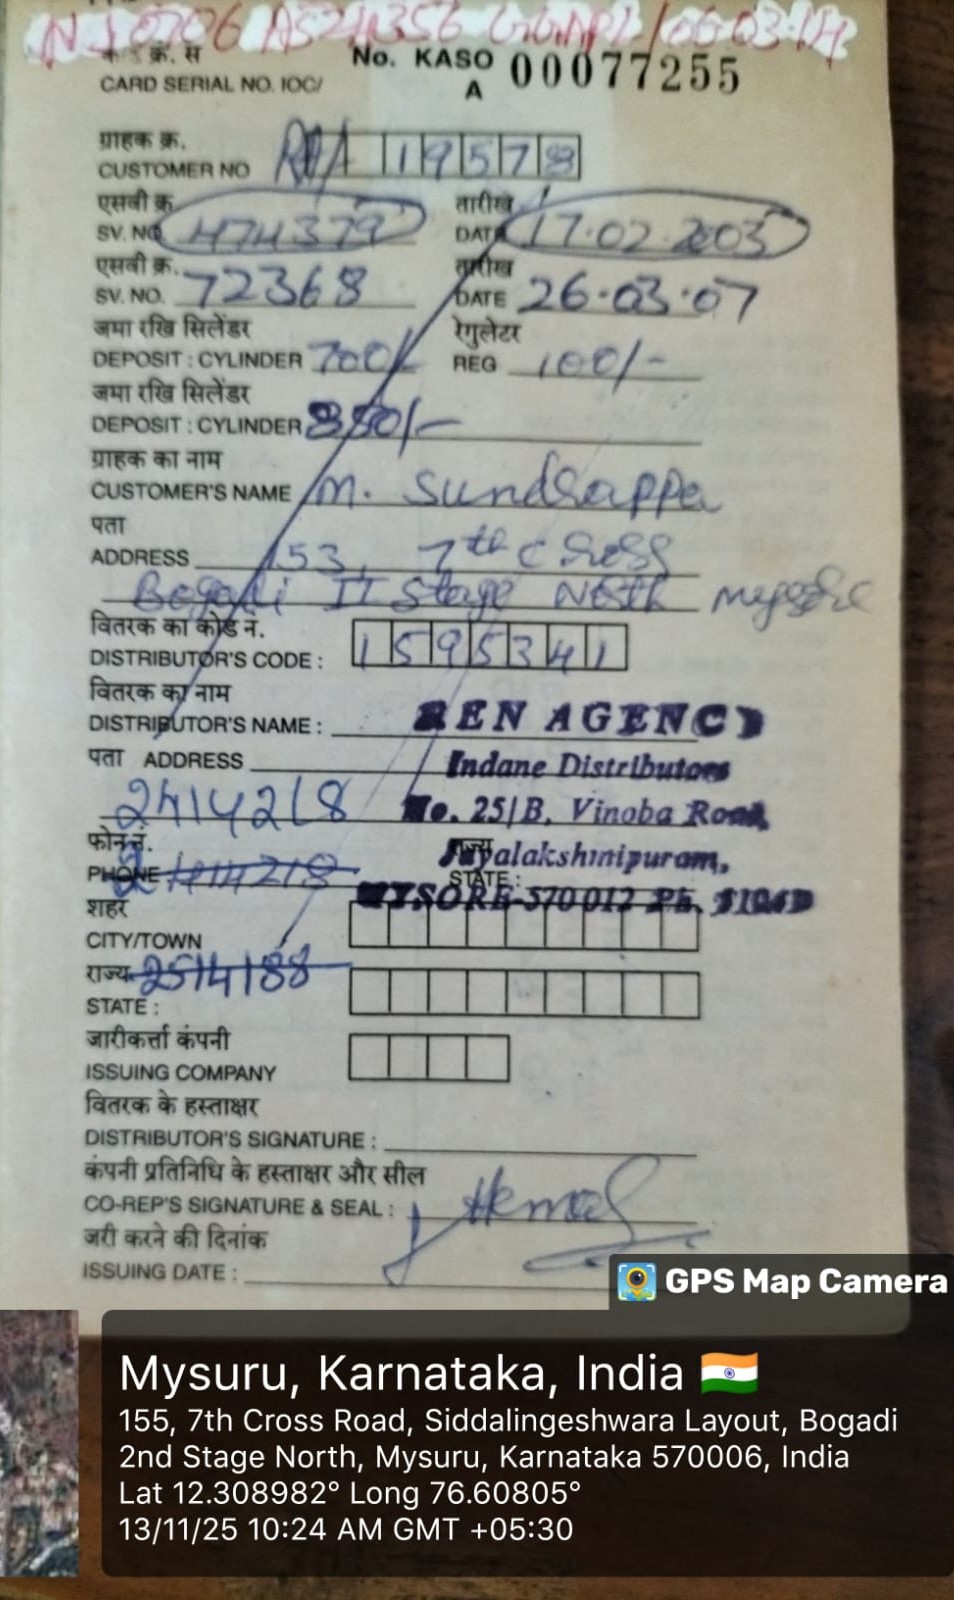 क्र. स
No. KASO A 00077255
CARD SERIAL NO. IOC/
ग्राहक क्र.
CUSTOMER NO 19578
एसवी क्र. तारीख
SV. NO 474379 DATE 17.02.2003
एसवी क्र. तारीख
SV. NO. 72368 DATE 26.03.07
जमा रखि सिलेंडर रेगुलेटर
DEPOSIT : CYLINDER 700/- REG 100/-
जमा रखि सिलेंडर
DEPOSIT : CYLINDER 850/-
ग्राहक का नाम
CUSTOMER'S NAME M. Sundrappa
पता
ADDRESS 153, 7th Cross
Bogadi II Stage North Mysore
वितरक का कोड नं.
DISTRIBUTOR'S CODE : 1595341
वितरक का नाम
DISTRIBUTOR'S NAME : REN AGENCY
पता ADDRESS Indane Distributors
2414218 No. 25/B, Vinoba Road,
फोन नं. राज्य Jayalakshmipuram,
PHONE 2414218 STATE :
शहर MYSORE-570 012 Ph.
CITY/TOWN
राज्य 2514188
STATE :
जारीकर्त्ता कंपनी
ISSUING COMPANY
वितरक के हस्ताक्षर
DISTRIBUTOR'S SIGNATURE :
कंपनी प्रतिनिधि के हस्ताक्षर और सील
CO-REP'S SIGNATURE & SEAL :
जरी करने की दिनांक
ISSUING DATE :
GPS Map Camera
Mysuru, Karnataka, India
155, 7th Cross Road, Siddalingeshwara Layout, Bogadi
2nd Stage North, Mysuru, Karnataka 570006, India
Lat 12.308982° Long 76.60805°
13/11/25 10:24 AM GMT +05:30